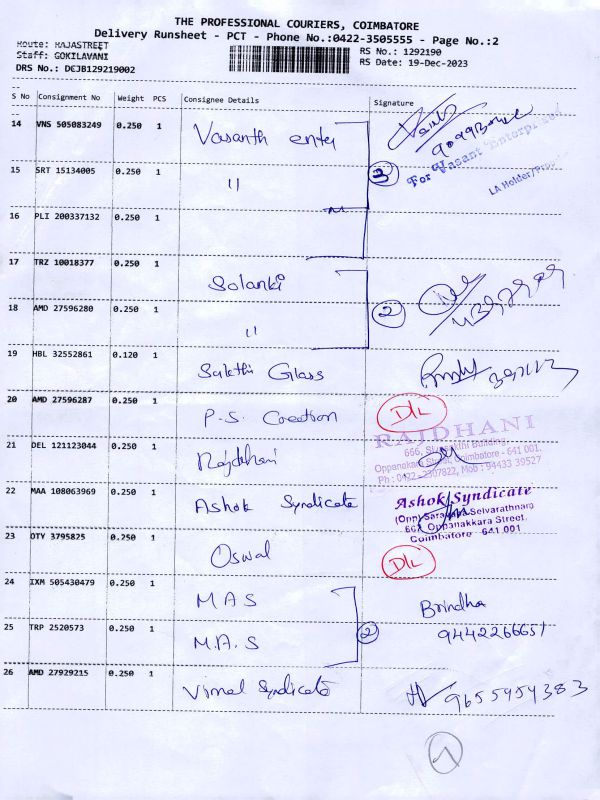 THE PROFESSIONAL COURIERS, COIMBATORE
Delivery Runsheet - PCT - Phone No.:0422-3505555 - Page No.:2
Route: RAJASTREET
Staff: GOKILAVANI
DRS No.: DCJB129219002
RS No.: 1292190
RS Date: 19-Dec-2023
S No Consignment No Weight PCS Consignee Details Signature
14 VNS 505083249 0.250 1 Vasanth enty
For Vasant Enterprises
LA Holder/Prop
15 SRT 15134005 0.250 1 11
3
16 PLI 200337132 0.250 1
17 TRZ 10018377 0.250 1 Solanki
18 AMD 27596280 0.250 1 11
2
19 HBL 32552861 0.120 1 Sakthi Glass
20 AMD 27596287 0.250 1 P.S. Creation D/L
21 DEL 121123044 0.250 1 Rajdhani
RAJDHANI
Building,
Oppanakara Street, Coimbatore - 641 001.
Ph : 0422 - 2307822, Mob : 94433 39527
22 MAA 108063969 0.250 1 Ashok Syndicate
Ashok Syndicate
Oppanakkara Street
Coimbatore - 641 001
23 OTY 3795825 0.250 1 Oswal D/L
24 IXM 505430479 0.250 1 MAS Brindha
25 TRP 2520573 0.250 1 M.A.S 2 9442266651
26 AMD 27929215 0.250 1 Vimal Syndicate 9655454383